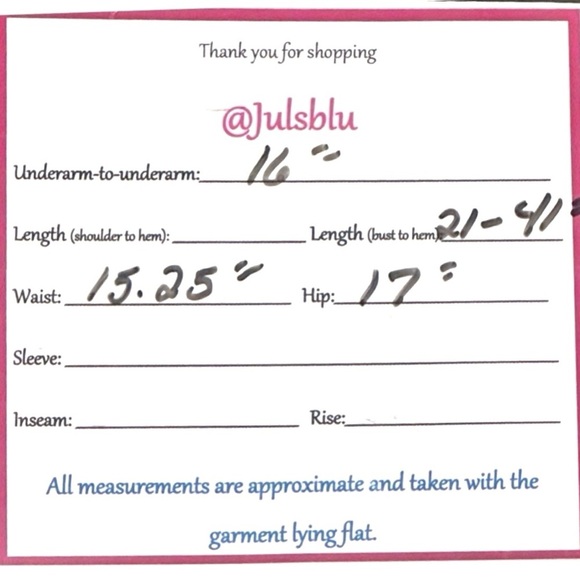 Thank you for shopping
@Julsblu
Underarm-to-underarm: 16"
Length (shoulder to hem): Length (bust to hem): 21-41"
Waist: 15.25" Hip: 17"
Sleeve:
Inseam: Rise:
All measurements are approximate and taken with the
garment lying flat.